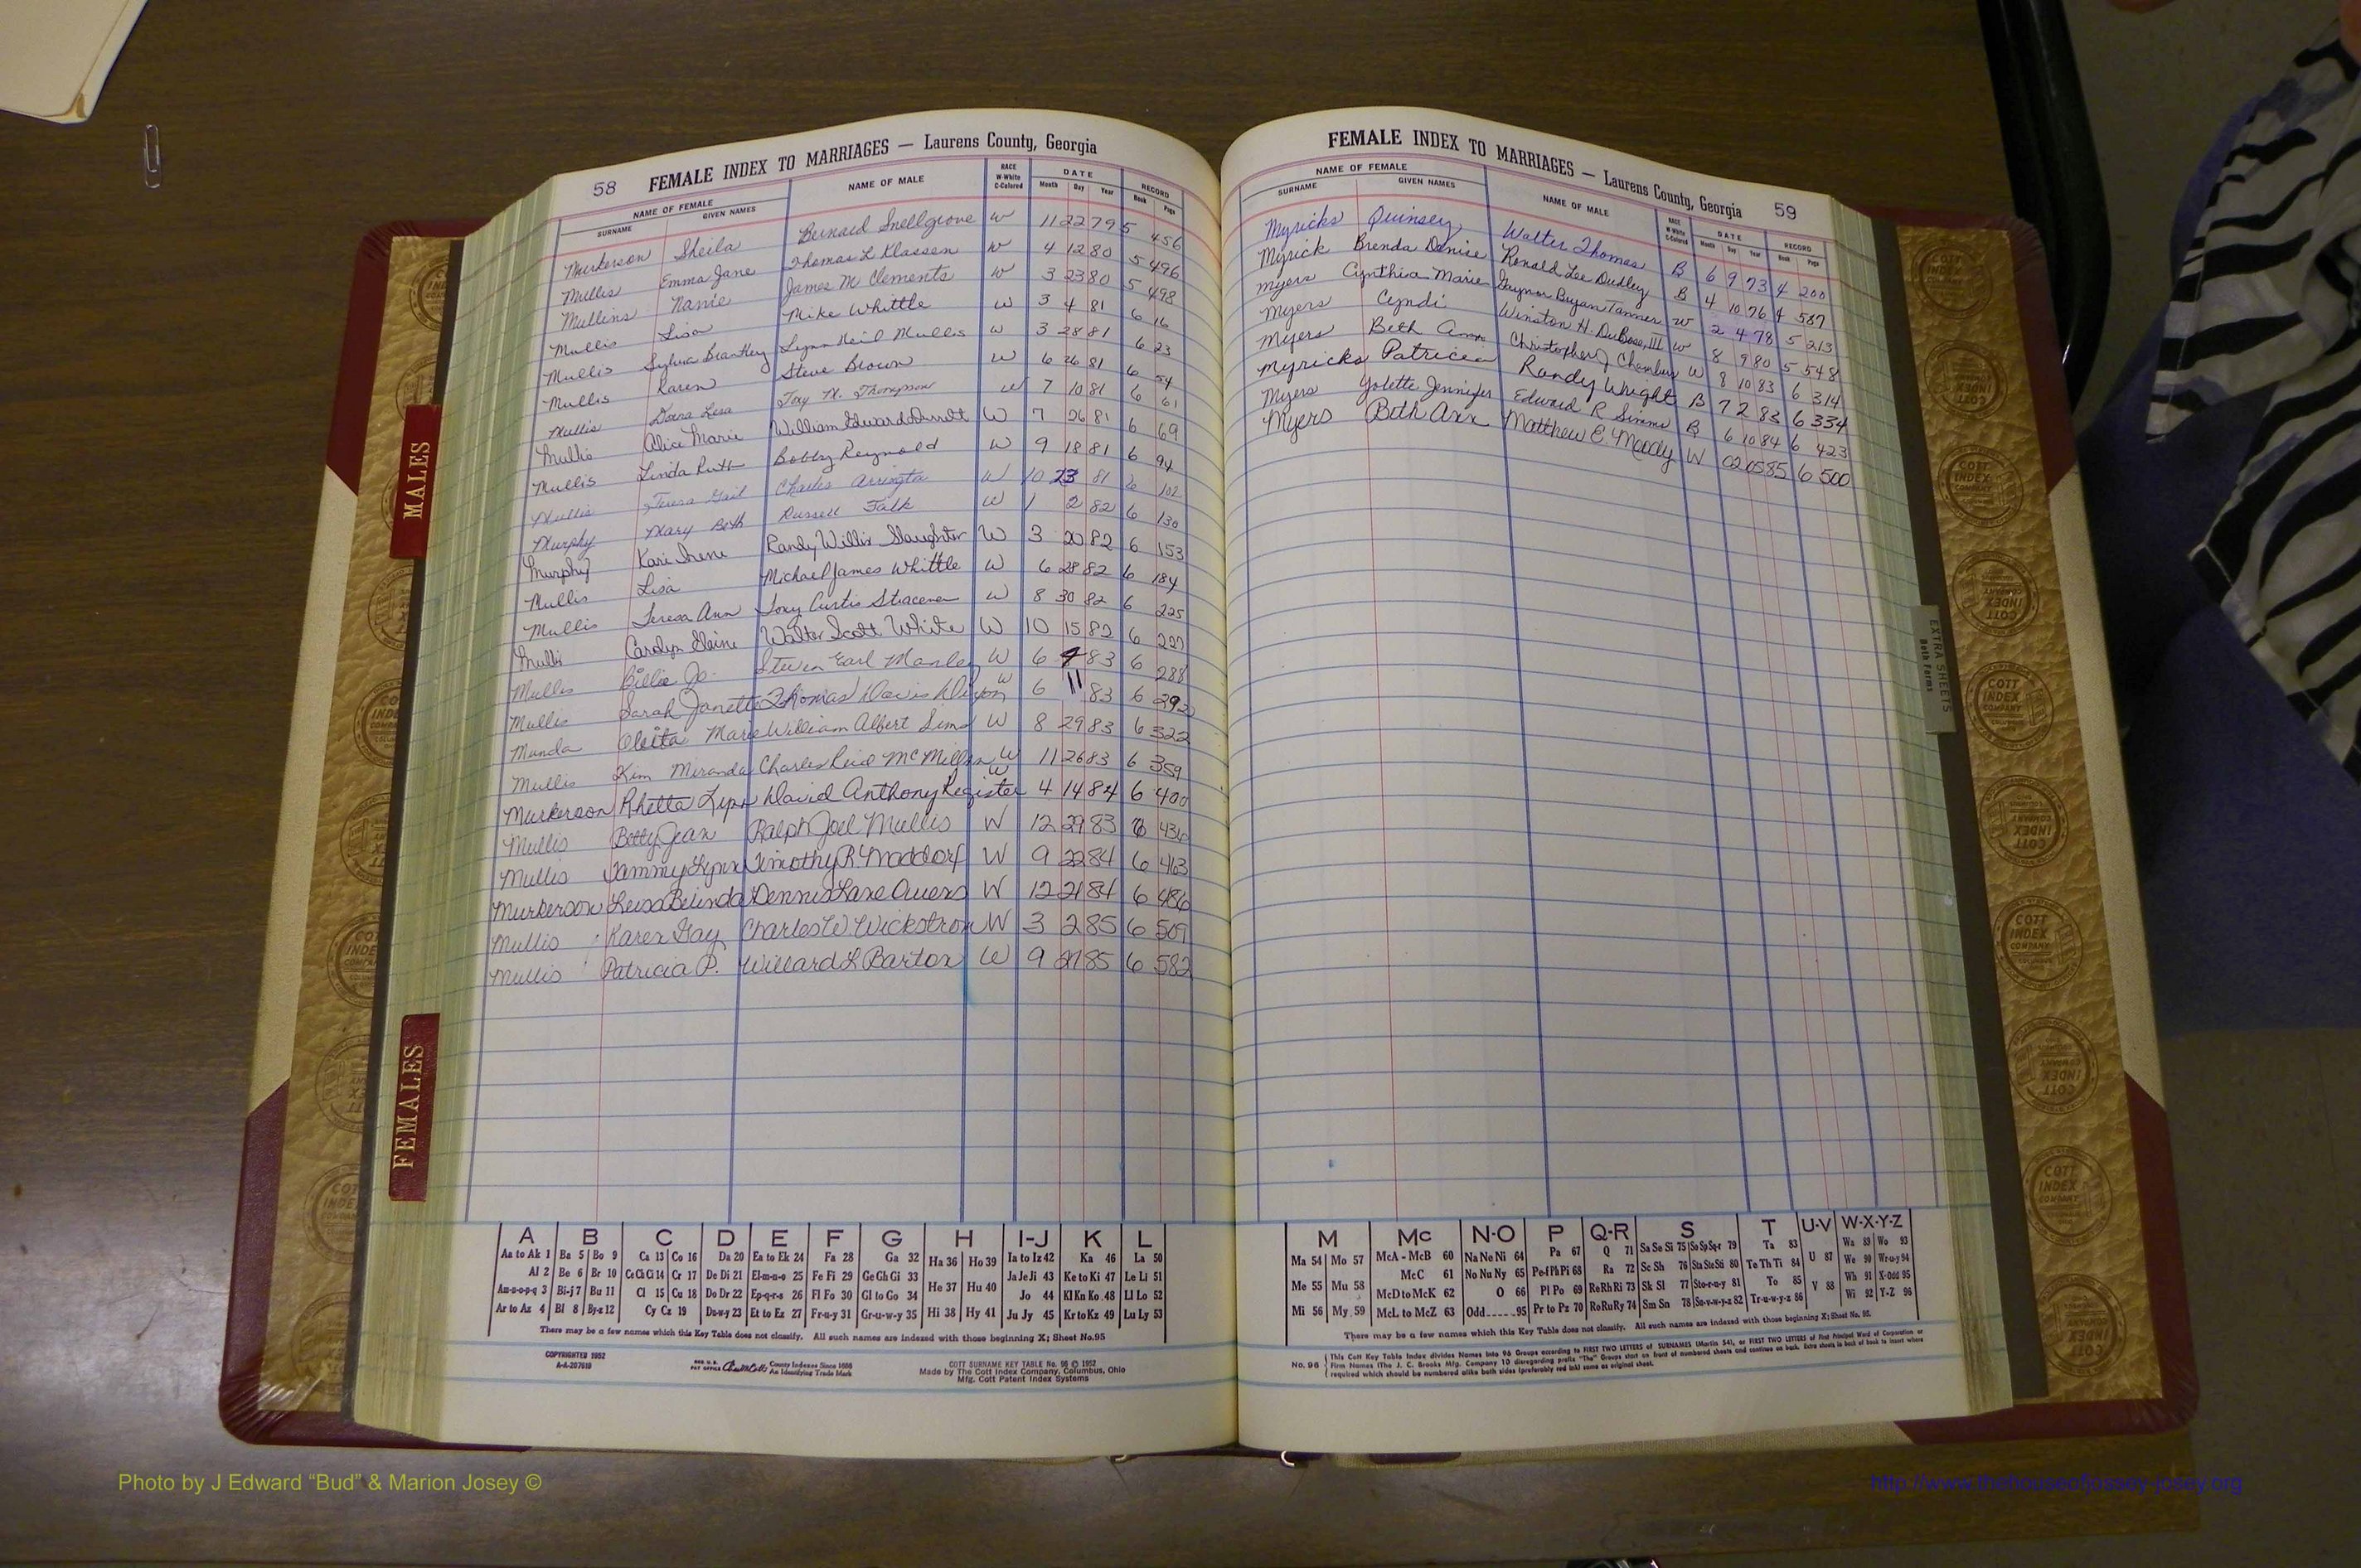 58 FEMALE INDEX TO MARRIAGES — Laurens County, Georgia
NAME OF FEMALE NAME OF MALE RACE W-White C-Colored DATE RECORD
SURNAME GIVEN NAMES Month Day Year Book Page
Murkerson Sheila Bernard Snellgrove W 11 22 79 5 456
Mullis Emma Jane Thomas L Klassen W 4 12 80 5 496
Mullins Nanie James M Clements W 3 23 80 5 498
Mullis Lisa Mike Whittle W 3 4 81 6 16
Mullis Sylvia Brantley Lynn Neil Mullis W 3 28 81 6 23
Mullis Karen Steve Brown W 6 26 81 6 54
Mullis Lisa Tony M. Thompson W 7 10 81 6 61
Mullis Alice Marie William Edward W 7 26 81 6 69
Mullis Linda Ruth Bobby Reynold W 9 18 81 6 94
Mullis Teresa Gail Charles W 10 23 81 6 102
Murphy Mary Beth Russell Falk W 1 2 82 6 130
Murphy Kari Irene Randy Willis Slaughter W 3 20 82 6 153
Mullis Lisa Michael James Whittle W 6 28 82 6 184
Mullis Teresa Ann Tony Curtis W 8 30 82 6 225
Mullis Carolyn Elaine Walter Scott White W 10 15 82 6 227
Mullis Billie Jo Steven Earl Manley W 6 4 83 6 288
Mullis Sarah Janette Thomas Davis Dixon W 6 11 83 6 292
Munda Marie William Albert Sims W 8 29 83 6 322
Mullis Kim Miranda Charles Reid McMillan W 11 26 83 6 359
Murkerson Rhetta Lynn David Anthony Register W 4 14 84 6 400
Mullis Betty Jean Ralph Joel Mullis W 12 29 83 6 436
Mullis Tammy Lynn Timothy R. Maddox W 9 22 84 6 463
Murkerson Leisa Belinda Dennis Lane Owens W 12 21 84 6 486
Mullis Karen Gay Charles W. Wickstrom W 3 2 85 6 509
Mullis Patricia P. Willard L Barton W 9 85 6 582
FEMALE INDEX TO MARRIAGES — Laurens County, Georgia 59
NAME OF FEMALE NAME OF MALE RACE W-White C-Colored DATE RECORD
SURNAME GIVEN NAMES Month Day Year Book Page
Myricks Quinsey Walter Thomas B 6 9 73 4 200
Myrick Brenda Denise Ronald Lee Dudley B 4 10 76 4 587
Myers Cynthia Marie Gaynor Bryan Tanner W 2 4 78 5 213
Myers Cyndi Winston H. DuBose, III W 8 9 80 5 548
Myers Beth Ann Christopher J Chambers W 8 10 83 6 314
Myricks Patricia Randy Wright B 7 2 83 6 334
Myers Yolette Jennifer Edward R Simms B 6 10 84 6 423
Myers Beth Ann Matthew E. Moody W 02 05 85 6 500
MALES
FEMALES
EXTRA SHEETS
Both Forms
COTT INDEX COMPANY
A B C D E F G H I-J K L
Aa to Ak 1 Ba 5 Bo 9 Ca 13 Co 16 Da 20 Ea to Ek 24 Fa 28 Ga 32 Ha 36 Ho 39 Ia to Iz 42 Ka 46 La 50
Al 2 Be 6 Br 10 Ce Ch Ci 14 Cr 17 De Di 21 El-m-n-o 25 Fe Fi 29 Ge Gh Gi 33 He 37 Hu 40 Ja Je Ji 43 Ke to Ki 47 Le Li 51
Am-n-o-p-q 3 Bi-j 7 Bu 11 Cl 15 Cu 18 Do Dr 22 Ep-q-r-s 26 Fl Fo 30 Gl to Go 34 Jo 44 Kl Kn Ko 48 Ll Lo 52
Ar to Az 4 Bl 8 By-z 12 Cy Cz 19 Du-w-y 23 Et to Ez 27 Fr-u-y 31 Gr-u-w-y 35 Hi 38 Hy 41 Ju Jy 45 Kr to Kz 49 Lu Ly 53
There may be a few names which this Key Table does not classify. All such names are indexed with those beginning X; Sheet No.95
COPYRIGHTED 1952
A-A-207619
REG. U.S. PAT OFFICE County Indexes Since 1888
An Identifying Trade Mark
COTT SURNAME KEY TABLE No. 96 © 1952
Made by The Cott Index Company, Columbus, Ohio
Mfg. Cott Patent Index Systems
M Mc N-O P Q-R S T U-V W-X-Y-Z
Ma 54 Mo 57 McA - McB 60 Na Ne Ni 64 Pa 67 Q 71 Sa Se Si 75 So Sp Sq-r 79 Ta 83 U 87 Wa 89 Wo 93
Me 55 Mu 58 McC 61 No Nu Ny 65 Pe-f Ph Pi 68 Ra 72 Sc Sh 76 Sta Ste Sti 80 Te Th Ti 84 We 90 Wr-u-y 94
McD to McK 62 O 66 Pl Po 69 Re Rh Ri 73 Sk Sl 77 Sto-r-u-y 81 To 85 V 88 Wh 91 X-Odd 95
Mi 56 My 59 McL to McZ 63 Odd 95 Pr to Pz 70 Ro Ru Ry 74 Sm Sn 78 Su-v-w-y-z 82 Tr-u-w-y-z 86 Wi 92 Y-Z 96
There may be a few names which this Key Table does not classify. All such names are indexed with those beginning X; Sheet No. 95.
No. 96 This Cott Key Table Index divides Names into 96 Groups according to FIRST TWO LETTERS of SURNAMES (Martin 54), or FIRST TWO LETTERS of First Principal Word of Corporation or
Firm Names (The J. C. Brooks Mfg. Company 10 disregarding prefix "The" Groups start on front of numbered sheets and continue on back. Extra sheets in back of book to insert where
required which should be numbered alike both sides (preferably red ink) same as original sheet.
Photo by J Edward “Bud” & Marion Josey ©
http://www.thehouseofjossey-josey.org